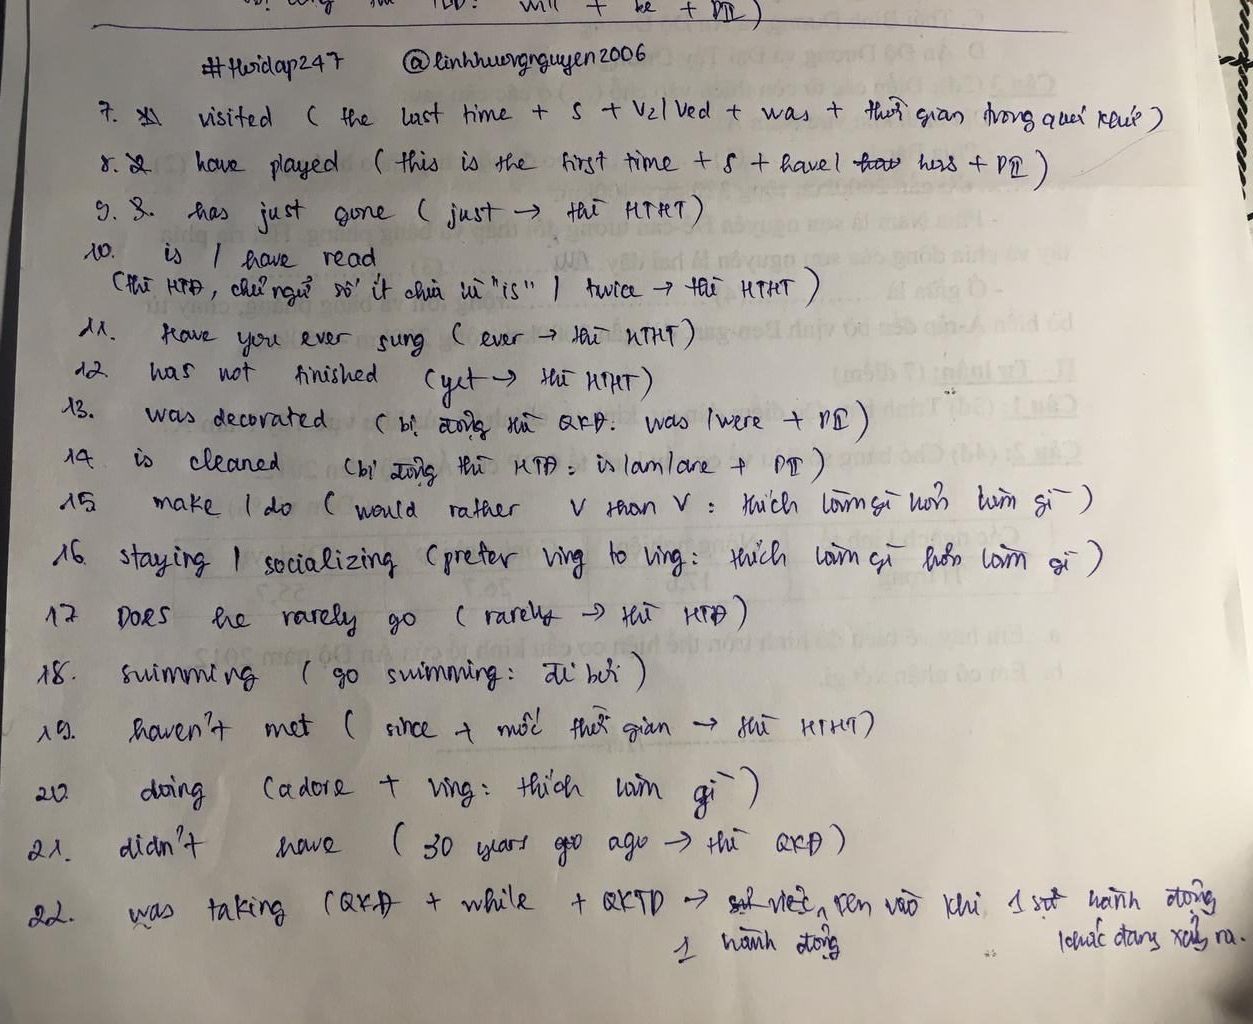 TLĐ: will + be + PII)
#hoidap247 @linhhuongnguyen2006
7. visited ( the last time + S + V2/Ved + was + thời gian trong quá khứ )
8. have played ( this is the first time + S + have/ has + PII )
9. has just gone ( just → thì HTHT )
10. is / have read
(thì HTĐ, chủ ngữ số ít chia là "is" / twice → thì HTHT )
11. Have you ever sung ( ever → thì HTHT )
12. has not finished (yet → thì HTHT )
13. was decorated ( bị động thì QKĐ: was /were + PII )
14 is cleaned (bị động thì HTĐ: is/am/are + PII )
15 make / do ( would rather V than V : thích làm gì hơn làm gì )
16. staying / socializing (prefer Ving to Ving: thích làm gì hơn làm gì )
17 Does he rarely go ( rarely → thì HTĐ )
18. swimming ( go swimming: đi bơi )
19. haven't met ( since + mốc thời gian → thì HTHT )
20. doing (adore + Ving: thích làm gì )
21. didn't have ( 30 years ago → thì QKĐ )
22. was taking (QKĐ + while + QKTD → 1 hành động xen vào khi 1 hành động
khác đang xảy ra.